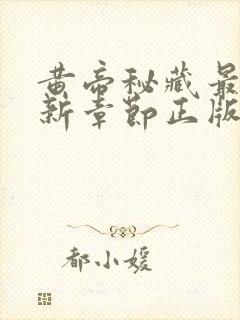 黄帝秘藏最
新章节正版
都小媛